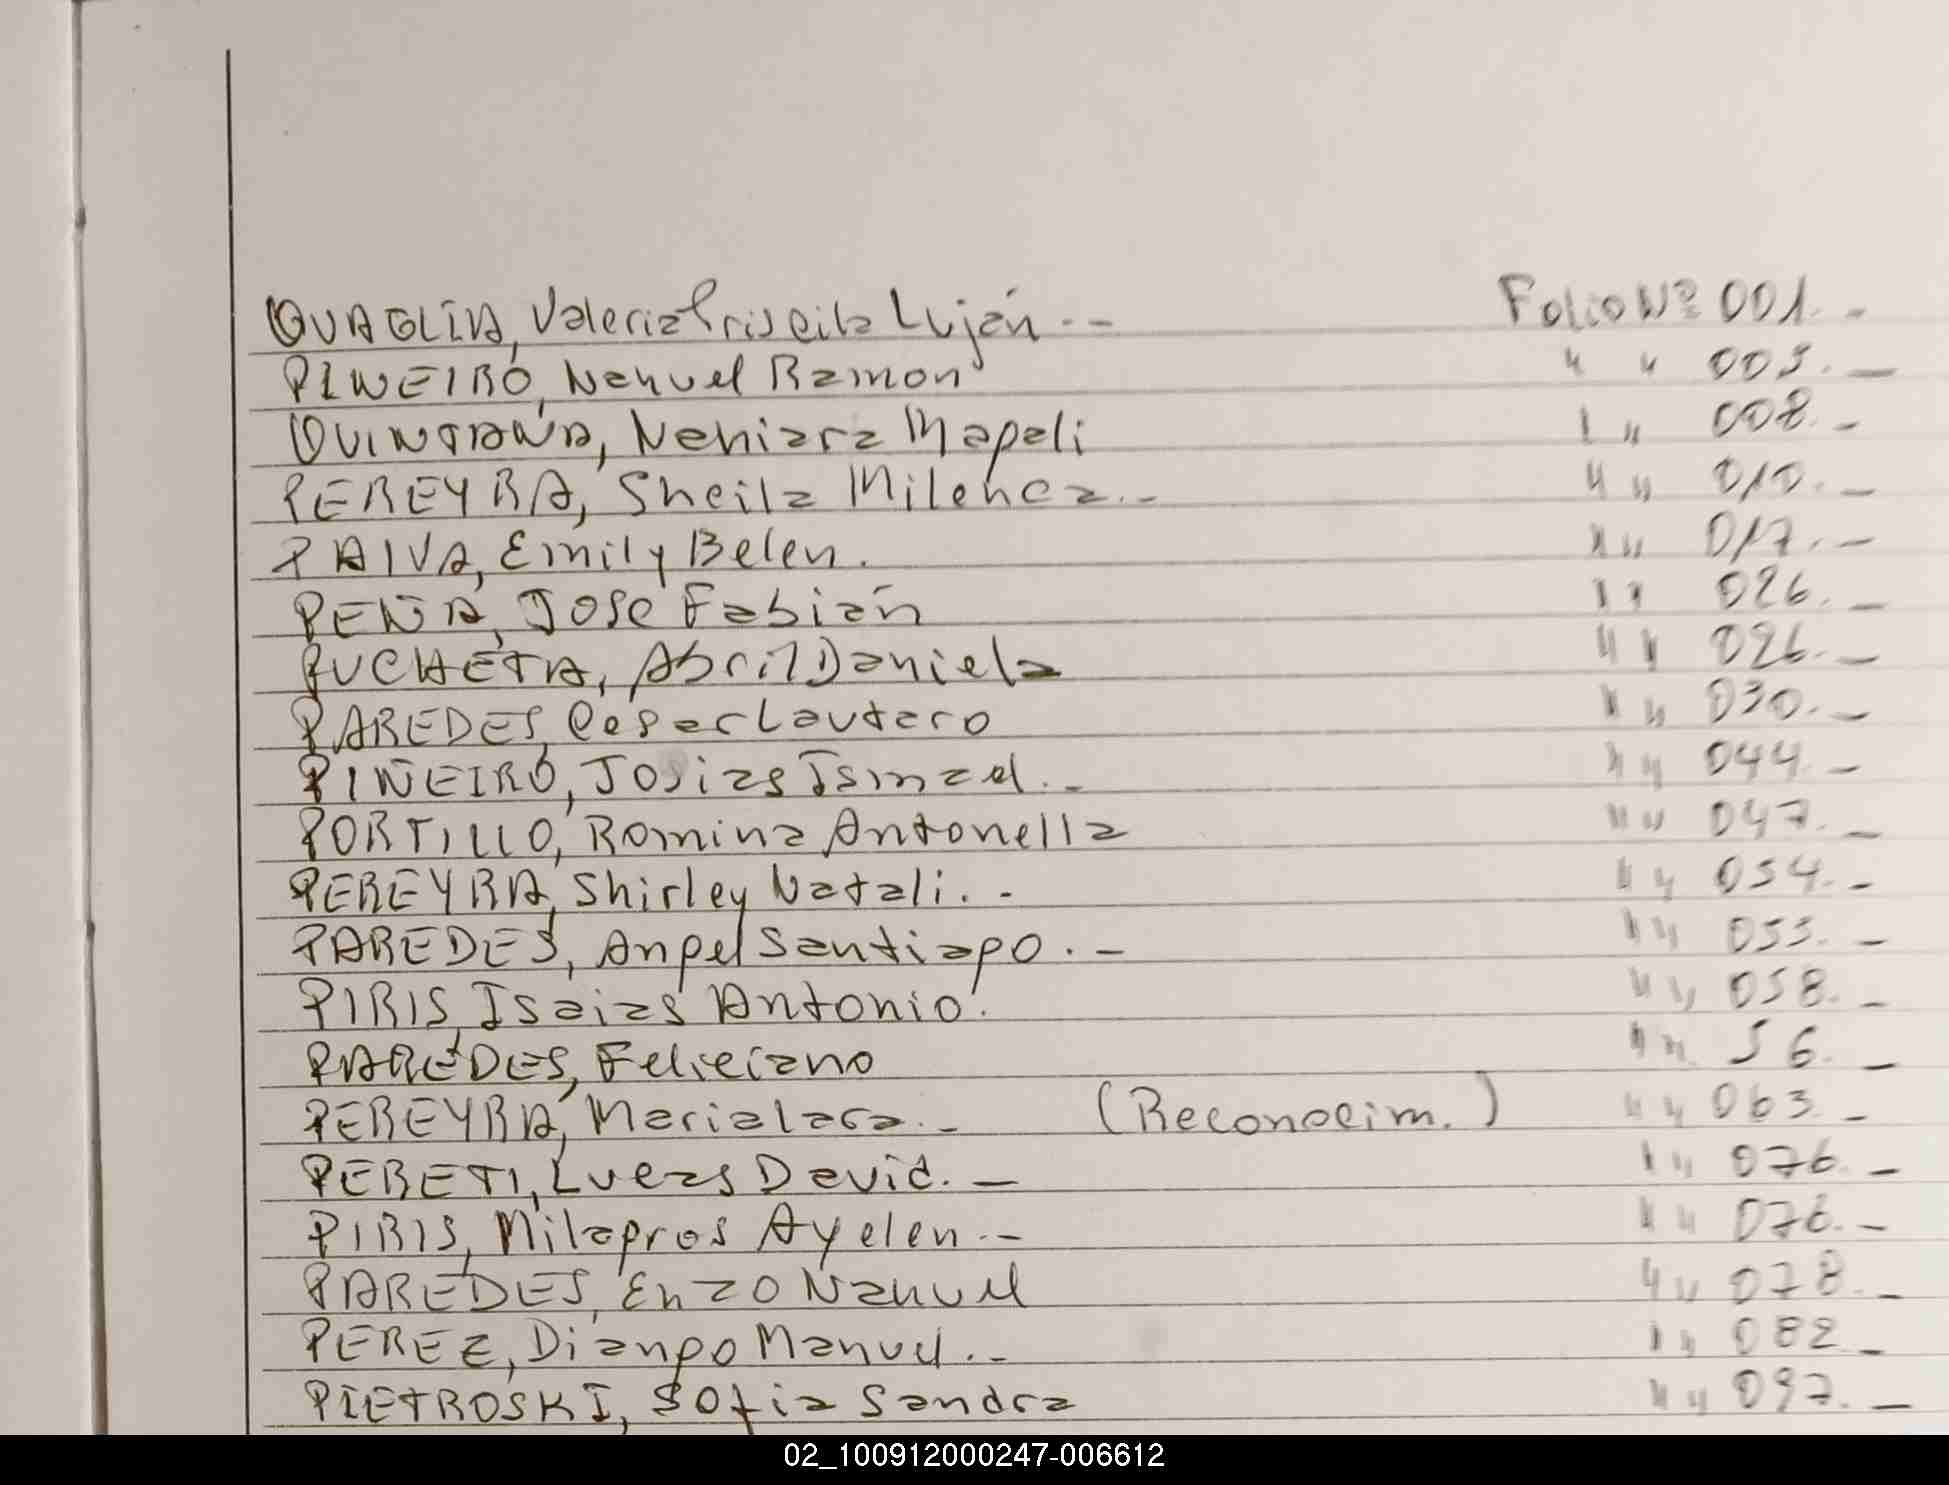 QUAGLIA, Valeria Priscila Luján.-- Folio Nº 001.-
PIÑEIRO, Nahuel Ramon " " 003.-
QUINTANA, Nahiara Magali " " 008.-
PEREYRA, Sheila Milenca.- " " 010.-
PAIVA, Emily Belen. " " 017.-
PEÑA, Jose Fabián " " 026.-
PUCHETA, Abril Daniela " " 026.-
PAREDES, Cesar Lautaro " " 030.-
PIÑEIRO, Josias Ismael.- " " 044.-
PORTILLO, Romina Antonella " " 047.-
PEREYRA, Shirley Natali.- " " 054.-
PAREDES, Angel Santiago.- " " 055.-
PIRIS, Isaias Antonio. " " 058.-
PAREDES, Feliciano " " 56.-
PEREYRA, Maria Lara.- (Reconocim.) " " 063.-
PERETI, Lucas David.- " " 076.-
PIRIS, Milagros Ayelen.- " " 076.-
PAREDES, Enzo Nahuel " " 078.-
PEREZ, Diango Manuel.- " " 082.-
PIETROSKI, Sofia Sandra " " 097.-
02_100912000247-006612